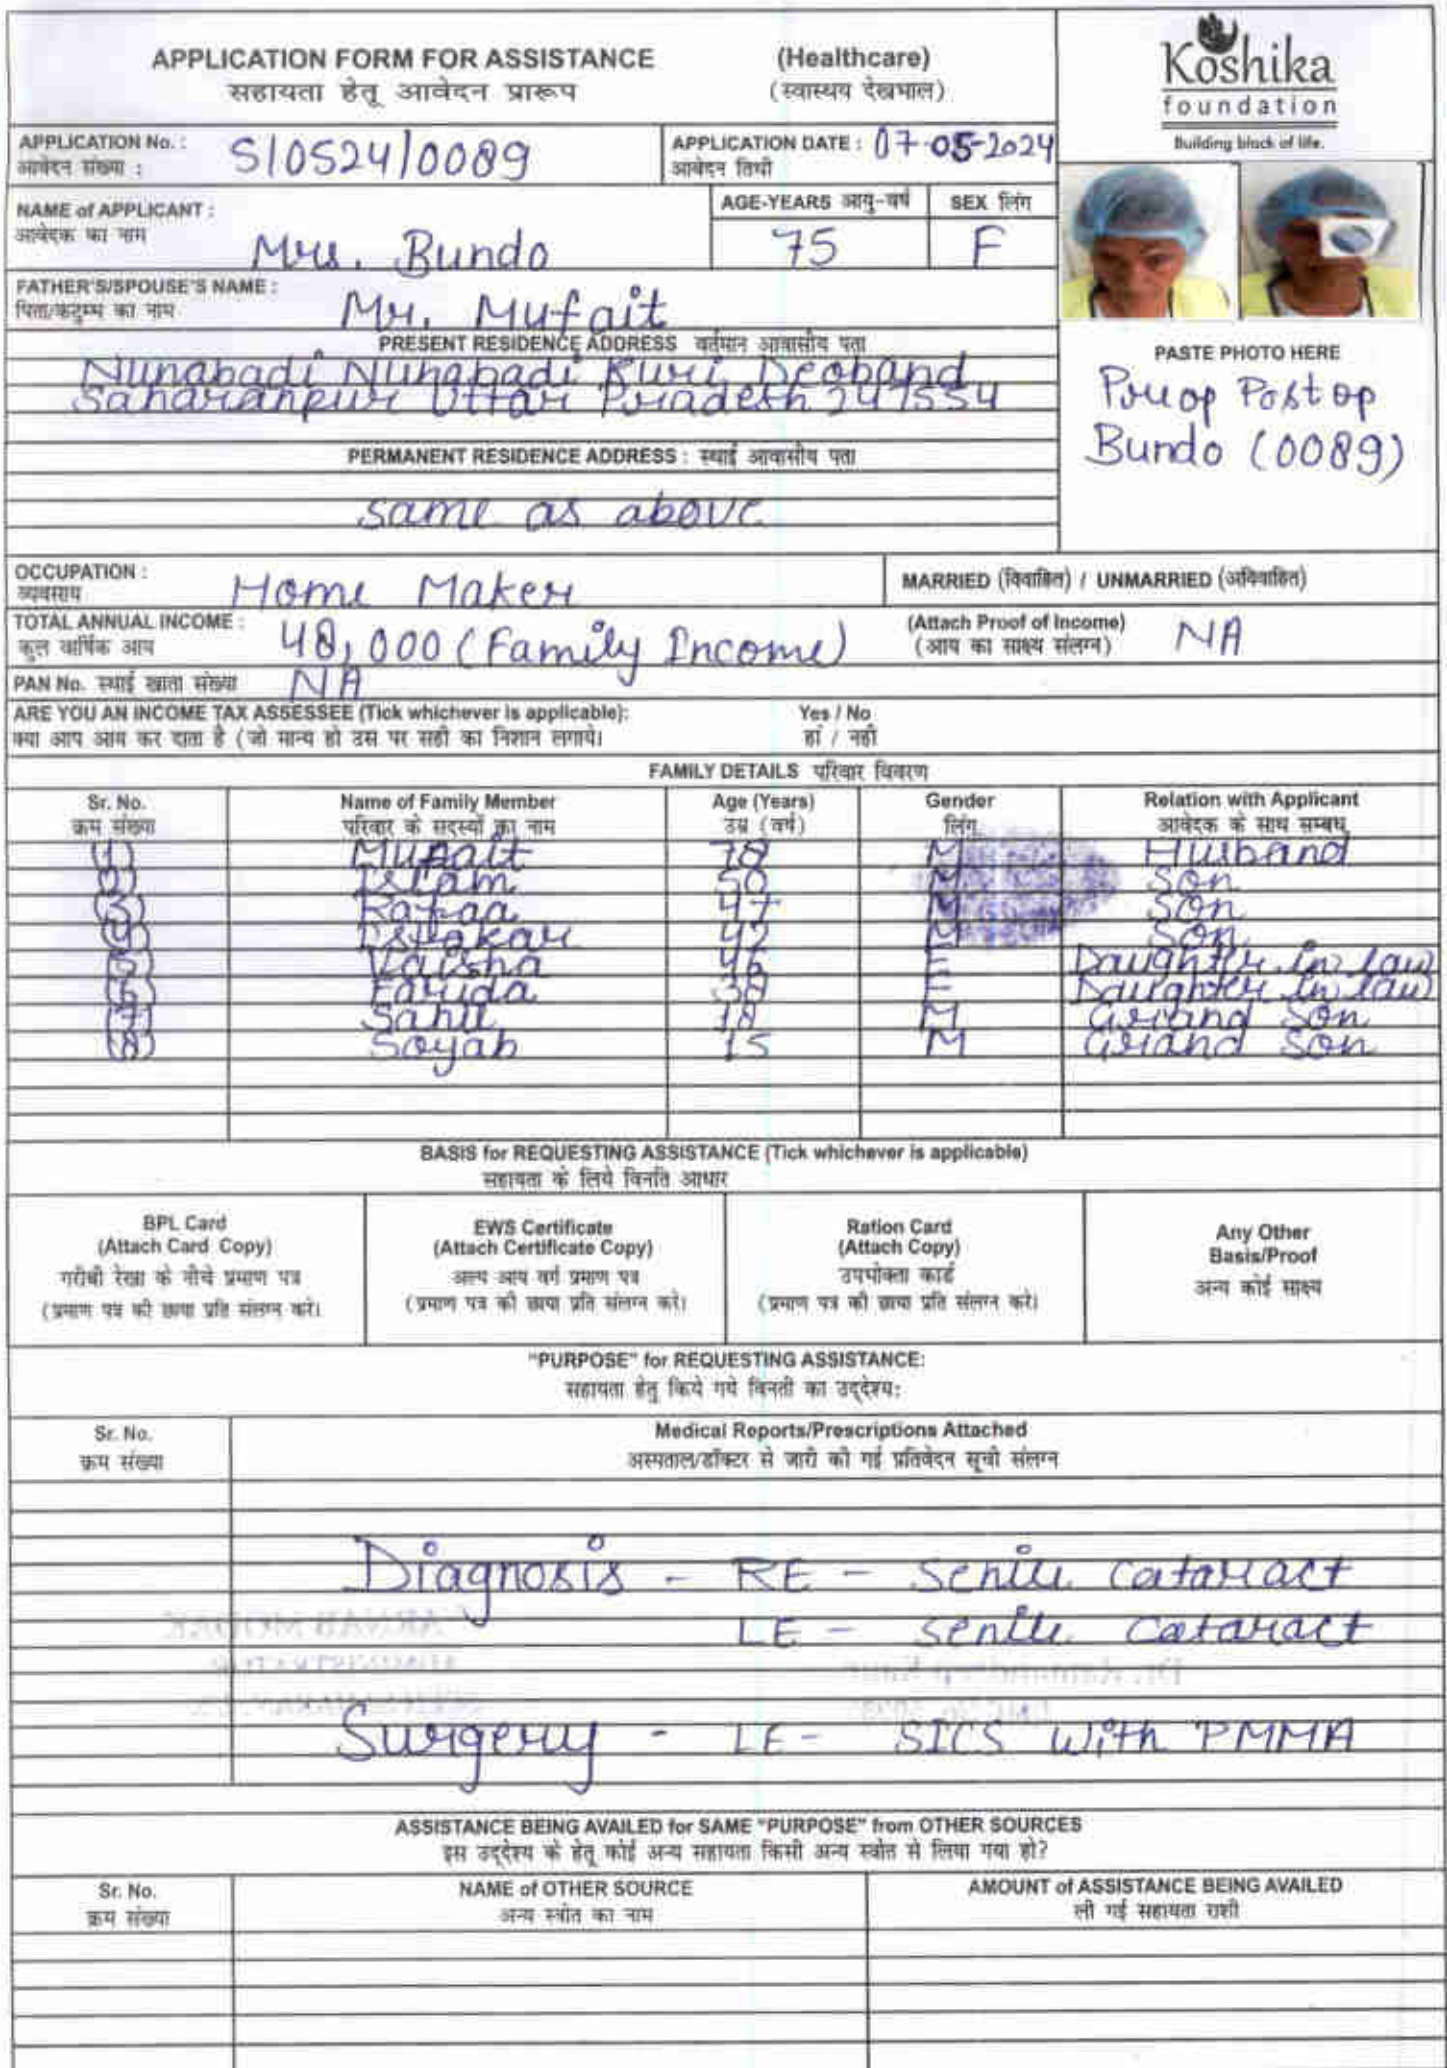 APPLICATION FORM FOR ASSISTANCE (Healthcare)
सहायता हेतू आवेदन प्रारूप (स्वास्थय देखभाल)
Koshika
foundation
Building block of life.
APPLICATION No. : S/0524/0089
आवेदन संख्या :
APPLICATION DATE : 07-05-2024
आवेदन तिथी
NAME of APPLICANT : Mrs. Bundo
आवेदक का नाम
AGE-YEARS आयु-वर्ष 75
SEX लिंग F
FATHER'S/SPOUSE'S NAME : Mr. Mufait
पिता/कटुम्ब का नाम
PRESENT RESIDENCE ADDRESS वर्तमान आवासीय पता
Nunabadi Nunabadi Kuri Deoband
Saharanpur Uttar Pradesh 247554
PASTE PHOTO HERE
Preop Postop
Bundo (0089)
PERMANENT RESIDENCE ADDRESS : स्थाई आवासीय पता
same as above
OCCUPATION : Home Maker
व्यवसाय
MARRIED (विवाहित) / UNMARRIED (अविवाहित)
TOTAL ANNUAL INCOME : 48,000 (Family Income)
कुल वार्षिक आय
(Attach Proof of Income) NA
(आय का साक्ष्य संलग्न)
PAN No. स्थाई खाता संख्या NA
ARE YOU AN INCOME TAX ASSESSEE (Tick whichever is applicable): Yes / No
क्या आप आय कर दाता है (जो मान्य हो उस पर सही का निशान लगाये। हां / नही
FAMILY DETAILS परिवार विवरण
Sr. No. Name of Family Member Age (Years) Gender Relation with Applicant
क्रम संख्या परिवार के सदस्यों का नाम उम्र (वर्ष) लिंग आवेदक के साथ सम्बध
(1) Mufait 78 M Husband
(2) Islam 50 M Son
(3) Rafaa 47 M Son
(4) 42 M Son
(5) Vaisha 46 F Daughter in law
(6) Farida 38 F Daughter in law
(7) Sahil 18 M Grand Son
(8) Soyab 15 M Grand Son
BASIS for REQUESTING ASSISTANCE (Tick whichever is applicable)
सहायता के लिये विनति आधार
BPL Card
(Attach Card Copy)
गरीबी रेखा के नीचे प्रमाण पत्र
(प्रमाण पत्र की छाया प्रति संलग्न करे।
EWS Certificate
(Attach Certificate Copy)
अल्प आय वर्ग प्रमाण पत्र
(प्रमाण पत्र की छाया प्रति संलग्न करे।
Ration Card
(Attach Copy)
उपभोक्ता कार्ड
(प्रमाण पत्र की छाया प्रति संलग्न करे।
Any Other
Basis/Proof
अन्य कोई साक्ष्य
"PURPOSE" for REQUESTING ASSISTANCE:
सहायता हेतु किये गये विनती का उद्देश्य:
Sr. No. Medical Reports/Prescriptions Attached
क्रम संख्या अस्पताल/डॉक्टर से जारी की गई प्रतिवेदन सूची संलग्न
Diagnosis - RE - Senile Cataract
LE - Senile Cataract
Surgery - LE - SICS with PMMA
ASSISTANCE BEING AVAILED for SAME "PURPOSE" from OTHER SOURCES
इस उद्देश्य के हेतू कोई अन्य सहायता किसी अन्य स्त्रोत से लिया गया हो?
Sr. No. NAME of OTHER SOURCE AMOUNT of ASSISTANCE BEING AVAILED
क्रम संख्या अन्य स्त्रोत का नाम ली गई सहायता राशी